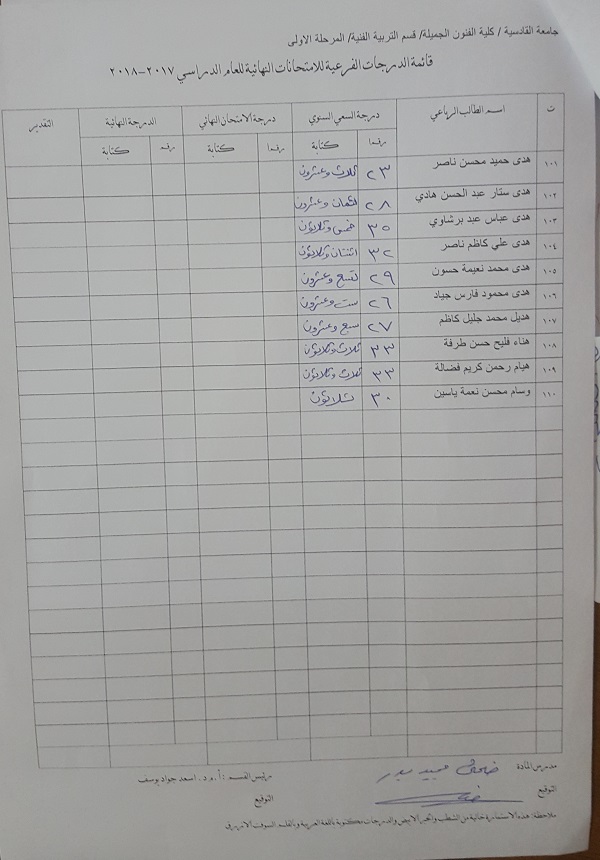 جامعة القادسية / كلية الفنون الجميلة/ قسم التربية الفنية/ المرحلة الاولى
قائمة الدرجات الفرعية للامتحانات النهائية للعام الدراسي ٢٠١٧-٢٠١٨
ت اسم الطالب الرباعي درجة السعي السنوي درجة الامتحان النهائي الدرجة النهائية التقدير
رقما كتابة رقما كتابة رقما كتابة
١٠١ هدى حميد محسن ناصر ٢٣ ثلاث وعشرون
١٠٢ هدى ستار عبد الحسن هادي ٢٨ ثمان وعشرون
١٠٣ هدى عباس عبد برشاوي ٣٥ خمس وثلاثون
١٠٤ هدى علي كاظم ناصر ٣٢ اثنتان وثلاثون
١٠٥ هدى محمد نعيمة حسون ٢٩ تسع وعشرون
١٠٦ هدى محمود فارس جياد ٢٦ ست وعشرون
١٠٧ هديل محمد جليل كاظم ٢٧ سبع وعشرون
١٠٨ هناء فليح حسن طرفة ٣٣ ثلاث وثلاثون
١٠٩ هيام رحمن كريم فضالة ٣٣ ثلاث وثلاثون
١١٠ وسام محسن نعمة ياسين ٣٠ ثلاثون
مدرس المادة رئيس القسم : أ.م.د. اسعد جواد يوسف
التوقيع التوقيع
ملاحظة: هذه الاستمارة خالية من الشطب والحبر الابيض والدرجات مكتوبة باللغة العربية وبالقلم السوفت الازرق